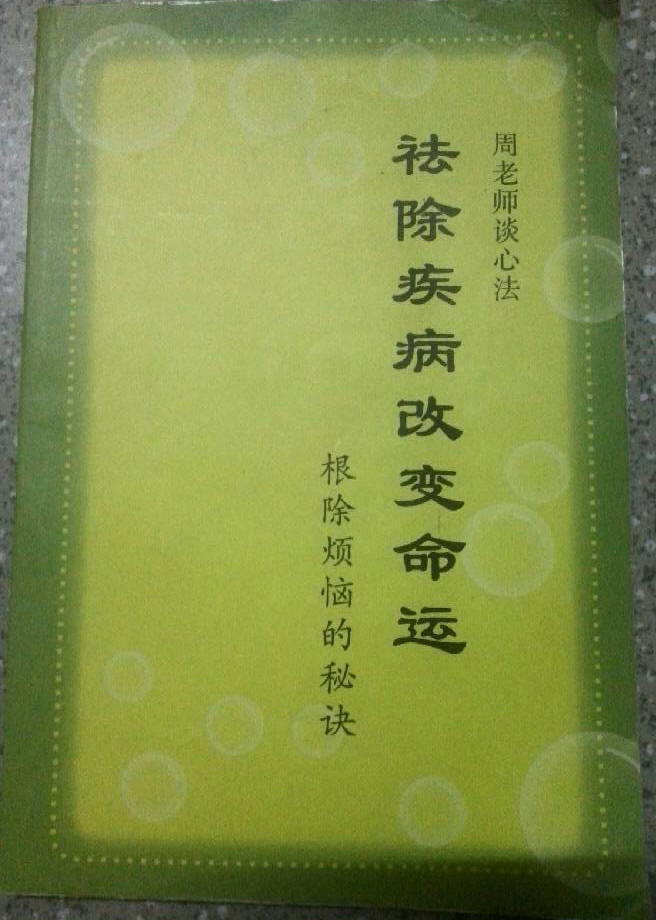 周老师谈心法
祛除疾病改变命运
根除烦恼的秘诀